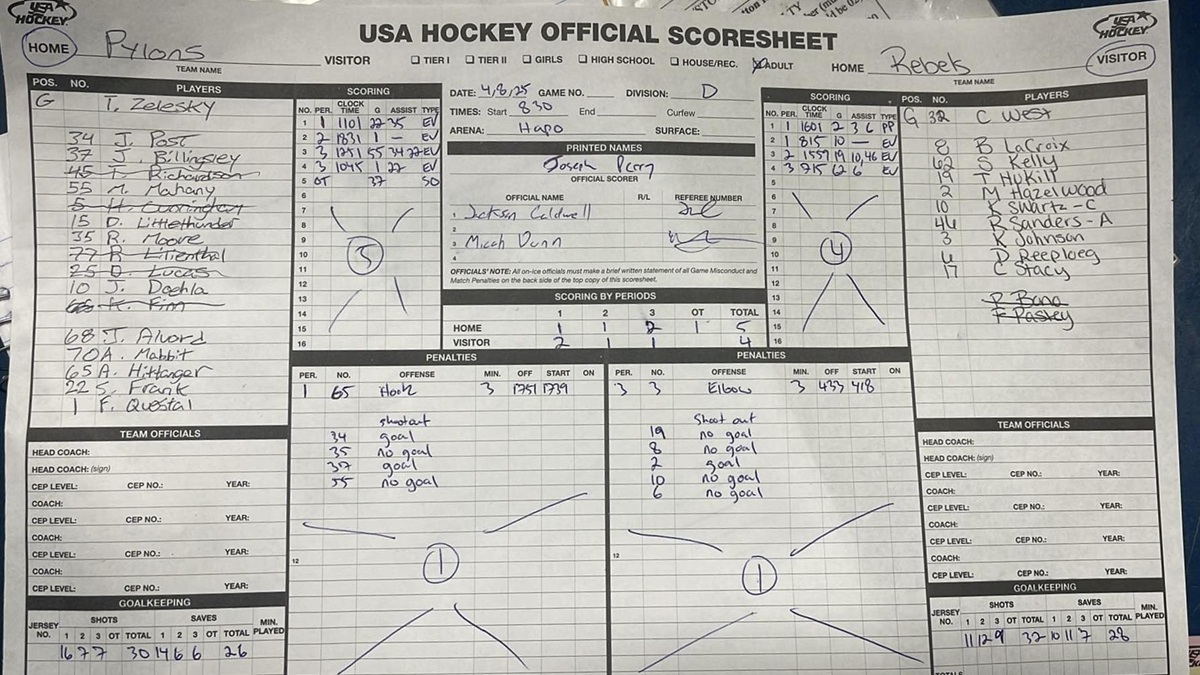 USA HOCKEY OFFICIAL SCORESHEET
USA HOCKEY
USA HOCKEY
HOME Pylons VISITOR
TEAM NAME
TIER I TIER II GIRLS HIGH SCHOOL HOUSE/REC. ADULT
HOME Rebels VISITOR
TEAM NAME
POS. NO. PLAYERS
G T. Zelesky
34 J. Post
37 J. Billingsley
45 T. Richardson
55 M. Mahany
15 D. Littlethunder
35 R. Moore
77 R Lilenthal
25 D. Lucas
10 J. Doehla
68 J. Alvord
70 A. Mabbit
65 A. Hittanger
22 S. Frank
1 F. Questal
SCORING
NO. PER. CLOCK TIME G ASSIST TYPE
1 1 1101 22 35 EV
2 2 1831 1 — EV
3 3 1251 55 34 22 EV
4 3 1045 1 22 EV
5 OT 37 SO
6
7
8
9
10
11
12
13
14
15
16
5
DATE: 4/8/25 GAME NO. DIVISION: D
TIMES: Start 830 End Curfew
ARENA: Hapo SURFACE:
PRINTED NAMES
Joseph Perry
OFFICIAL SCORER
OFFICIAL NAME R/L REFEREE NUMBER
1 Jackson Caldwell
2
3 Micah Dunn
4
OFFICIALS' NOTE: All on-ice officials must make a brief written statement of all Game Misconduct and
Match Penalties on the back side of the top copy of this scoresheet.
SCORING BY PERIODS
1 2 3 OT TOTAL
HOME 1 1 2 1 5
VISITOR 2 1 1 4
SCORING
NO. PER. CLOCK TIME G ASSIST TYPE
1 1 1601 2 3 6 PP
2 1 815 10 — EV
3 2 1559 19 10,46 EV
4 3 715 62 6 EV
5
6
7
8
9
10
11
12
13
14
15
16
4
POS. NO. PLAYERS
G 32 C West
8 B LaCroix
62 S Kelly
19 T Hukill
2 M Hazelwood
10 K Swartz - C
46 R Sanders - A
3 K Johnson
6 D Reeploeg
17 C Stacy
R Bana
F Pasley
PENALTIES
PER. NO. OFFENSE MIN. OFF START ON
1 65 Hook 3 1751 1739
shootout
34 goal
35 no goal
37 goal
55 no goal
12
1
PENALTIES
PER. NO. OFFENSE MIN. OFF START ON
3 3 Elbow 3 433 418
Shoot out
19 no goal
8 no goal
2 goal
10 no goal
6 no goal
12
1
TEAM OFFICIALS
HEAD COACH:
HEAD COACH: (sign)
CEP LEVEL: CEP NO.: YEAR:
COACH:
CEP LEVEL: CEP NO.: YEAR:
COACH:
CEP LEVEL: CEP NO.: YEAR:
COACH:
CEP LEVEL: CEP NO.: YEAR:
GOALKEEPING
JERSEY NO. SHOTS 1 2 3 OT TOTAL SAVES 1 2 3 OT TOTAL MIN. PLAYED
16 7 7 30 14 6 6 26
TEAM OFFICIALS
HEAD COACH:
HEAD COACH: (sign)
CEP LEVEL: CEP NO.: YEAR:
COACH:
CEP LEVEL: CEP NO.: YEAR:
COACH:
CEP LEVEL: CEP NO.: YEAR:
COACH:
CEP LEVEL: CEP NO.: YEAR:
GOALKEEPING
JERSEY NO. SHOTS 1 2 3 OT TOTAL SAVES 1 2 3 OT TOTAL MIN. PLAYED
11 12 9 32 10 11 7 28
TOTALS